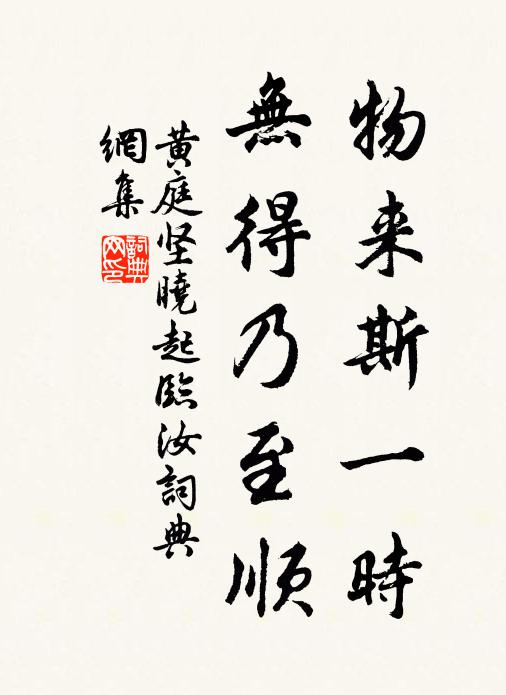 物来斯一時
無得乃至順
黄庭坚曉起臨汝詞典
網集
詞典网印